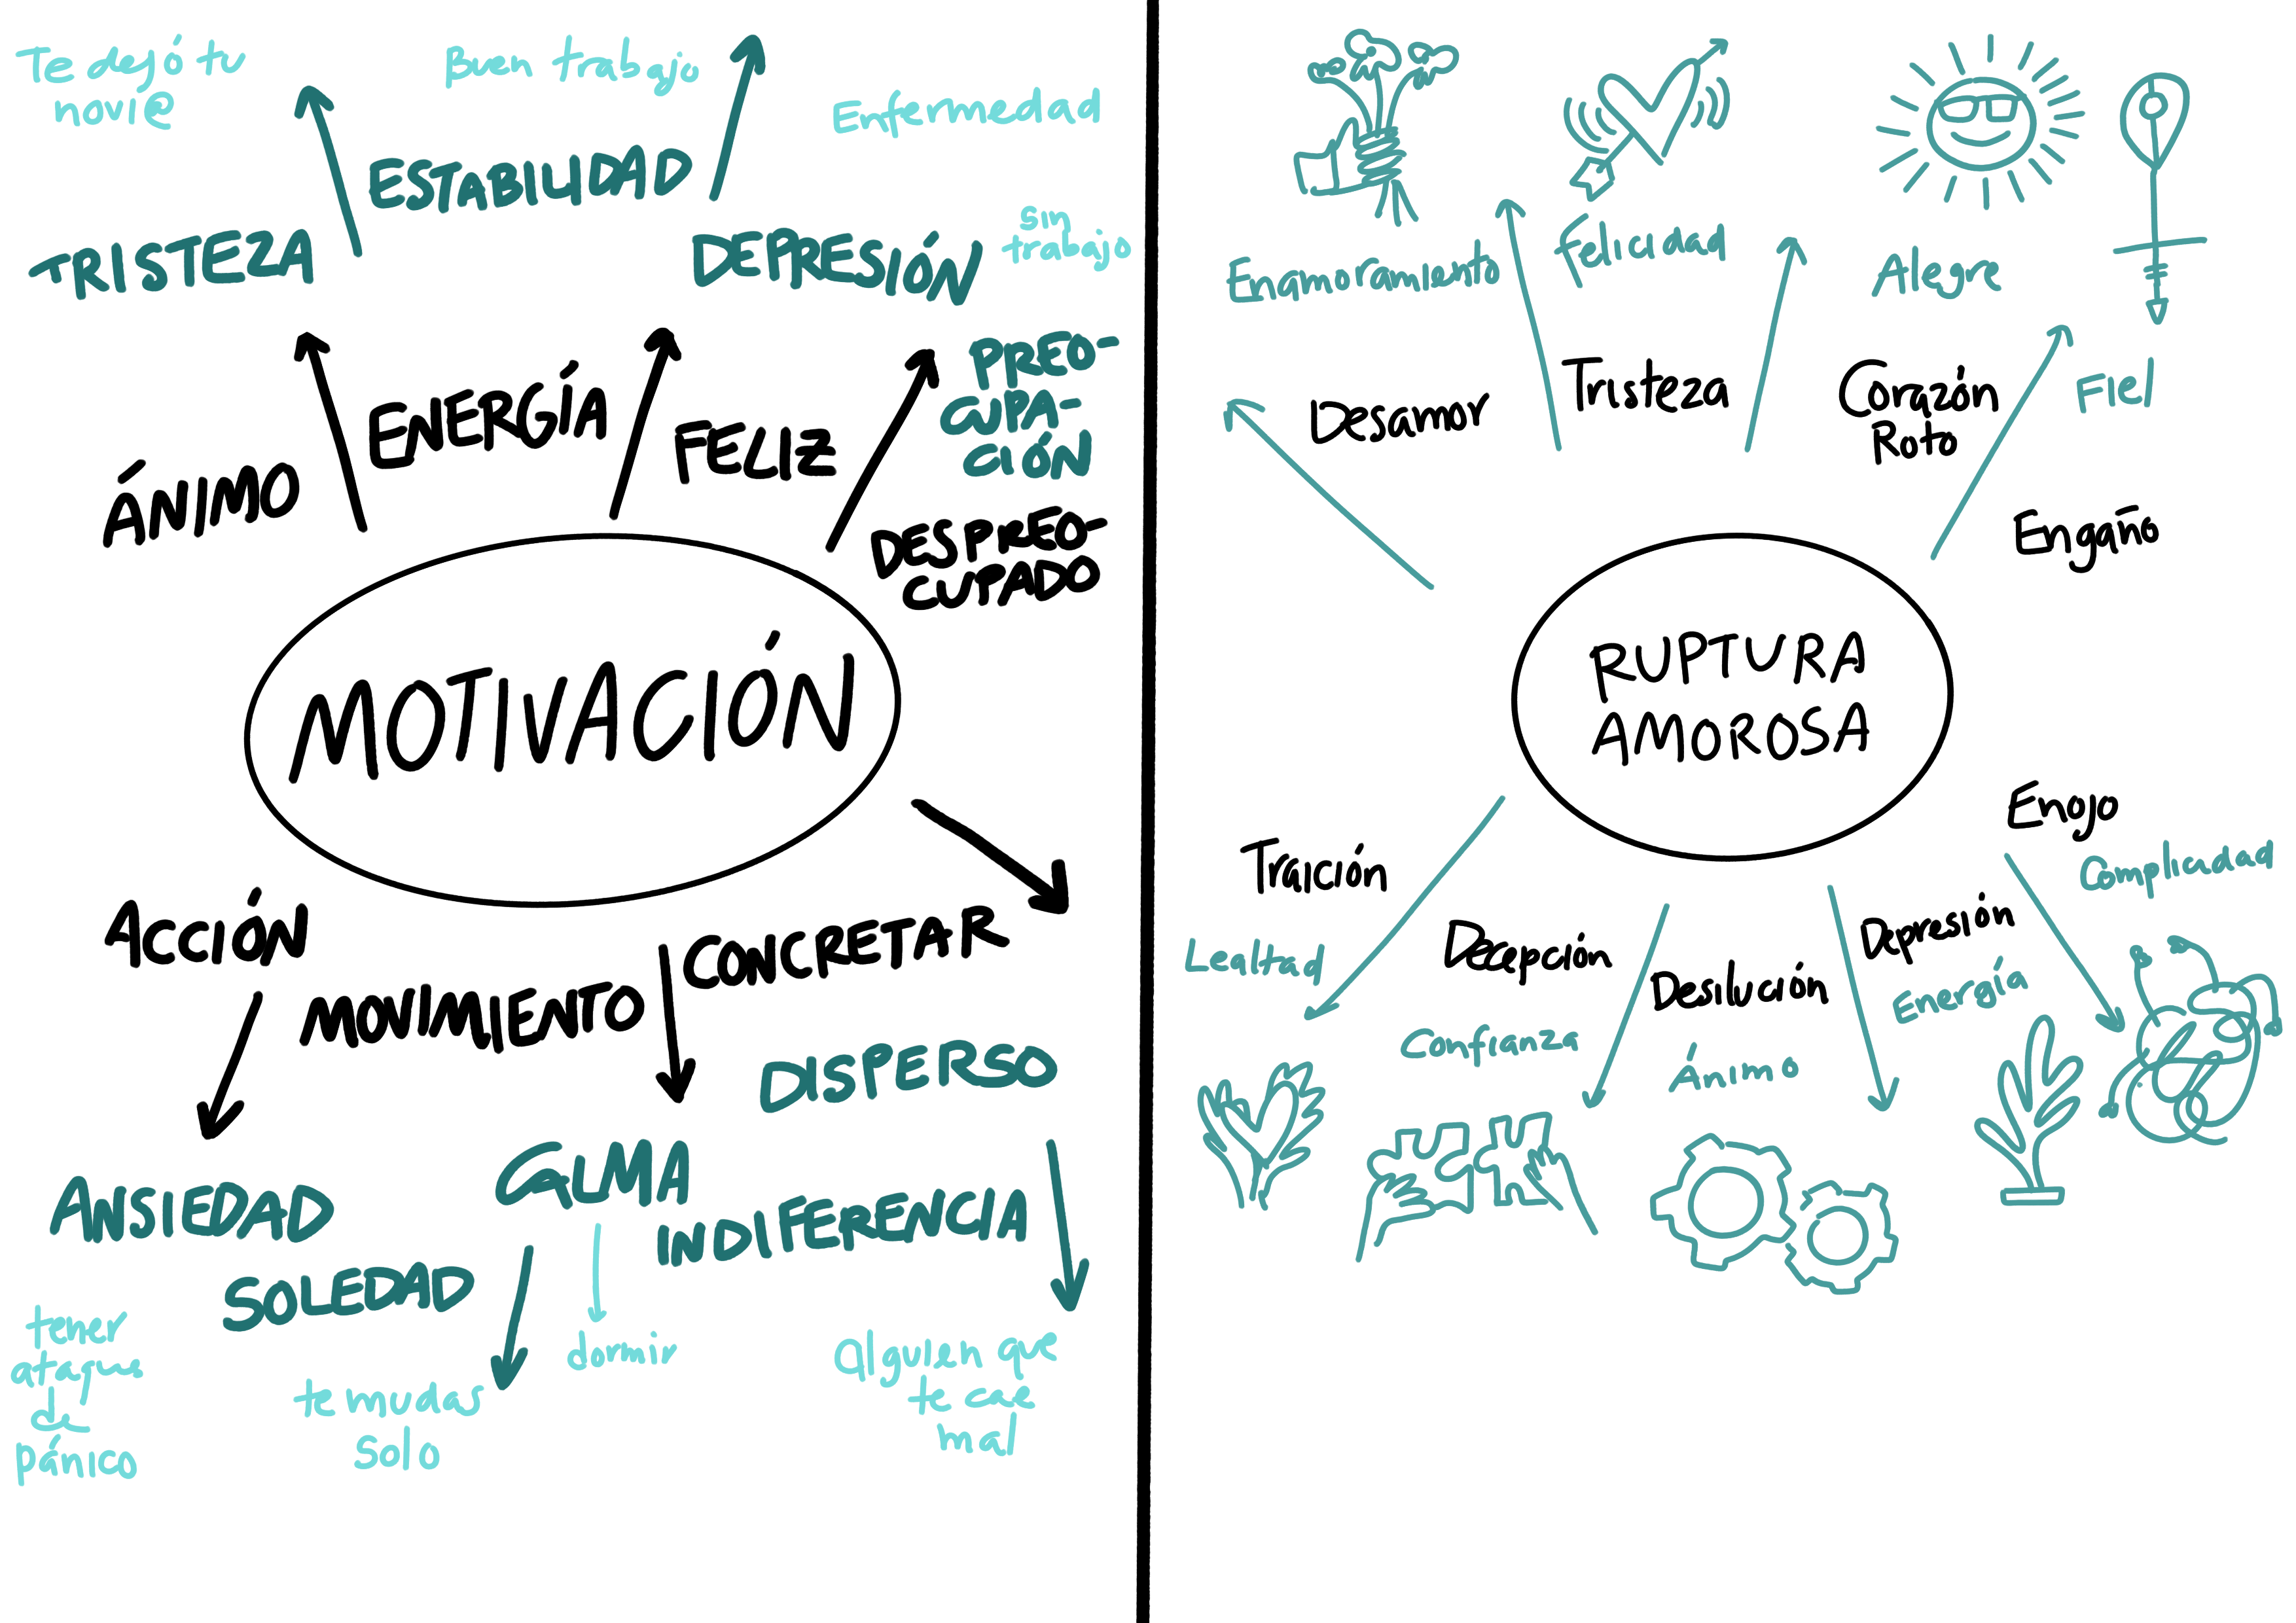 Te dejó tu
novi@
Buen trabajo
Enfermedad
ESTABILIDAD
TRISTEZA
DEPRESIÓN
sin
trabajo
PREO-
CUPA-
CIÓN
ENERGÍA
FELIZ
ÁNIMO
DESPREO-
CUPADO
MOTIVACIÓN
ACCIÓN
CONCRETAR
MOVIMIENTO
DISPERSO
CALMA
ANSIEDAD
INDIFERENCIA
SOLEDAD
tener
ataque
de
pánico
dormir
te mudas
solo
alguien que
te cae
mal
Enamoramiento
Felicidad
Alegre
Fiel
Desamor
Tristeza
Corazón
Roto
Engaño
RUPTURA
AMOROSA
Enojo
Complicidad
Traición
Lealtad
Decepción
Confianza
Desilución
Ánimo
Depresión
Energía